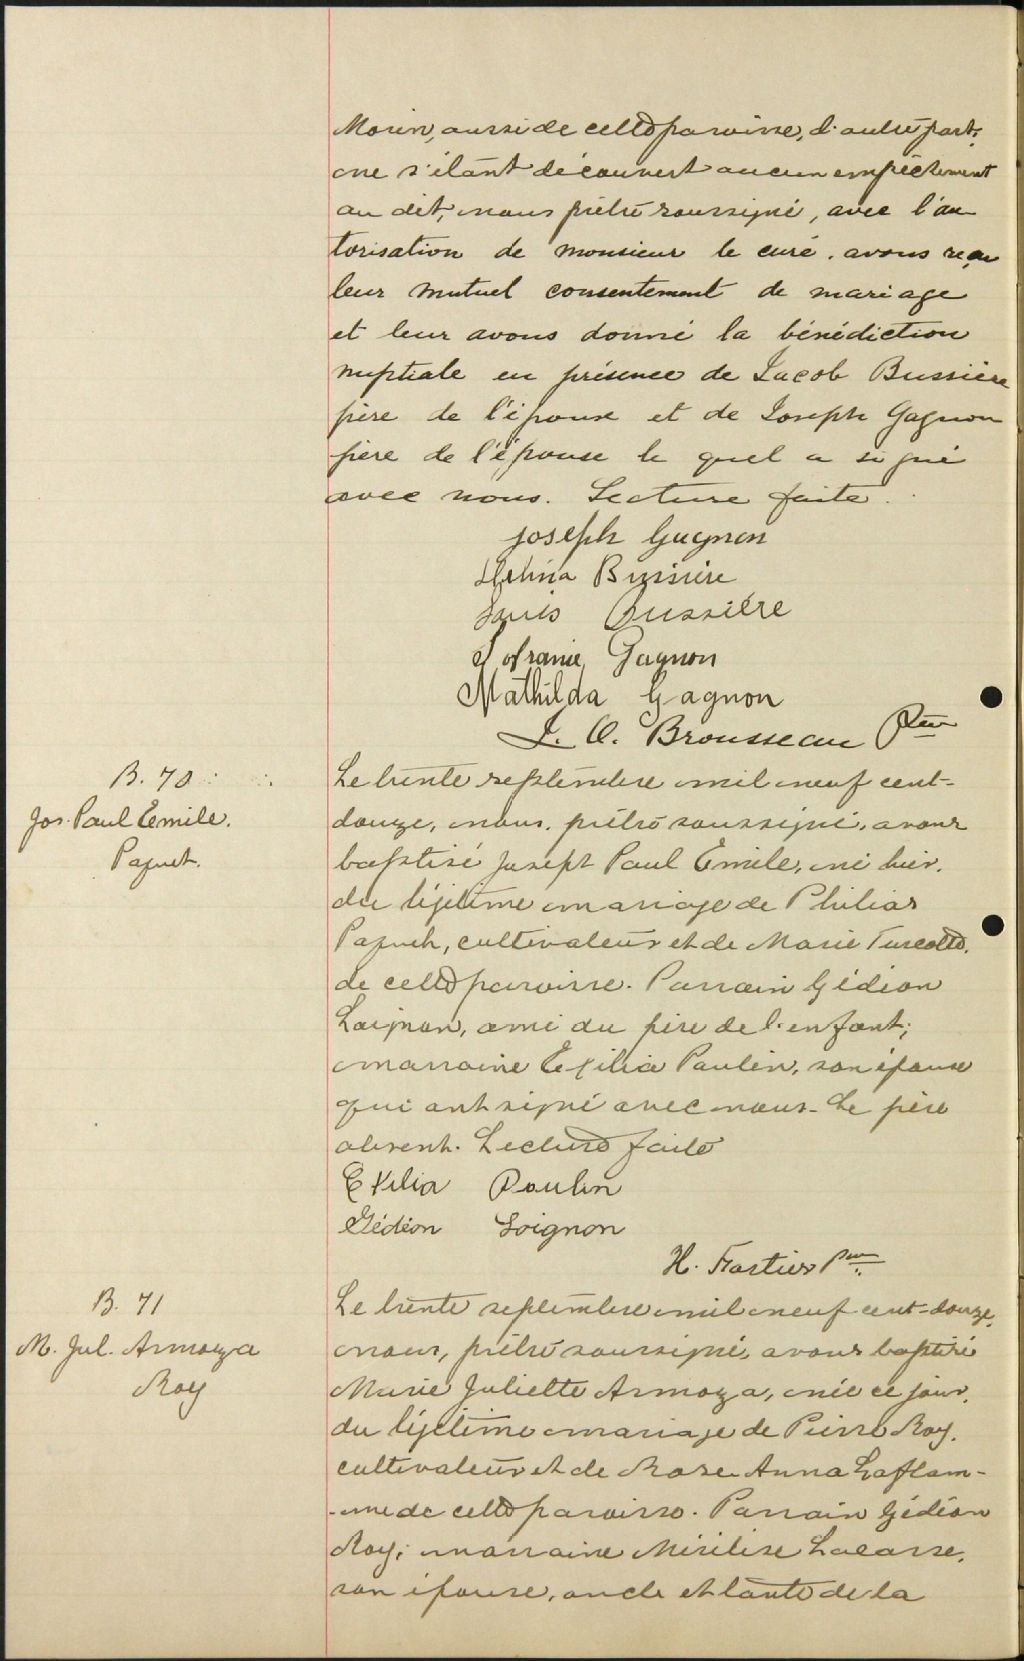 Morin, aussi de cette paroisse, d'autre part;
ne s'étant découvert aucun empêchement
au dit, nous prêtre soussigné, avec l'au
torisation de monsieur le curé, avons reçu
leur mutuel consentement de mariage
et leur avons donné la bénédiction
nuptiale en présence de Jacob Bussière
père de l'époux et de Joseph Gagnon
père de l'épouse le quel a signé
avec nous. Lecture faite.
Joseph Gagnon
Bussière
Louis Bussière
Gagnon
Mathilda Gagnon
J. O. Brousseau Ptre
B. 70
Jos. Paul Emile.
Paquet.
Le trente septembre mil neuf cent-
douze, nous, prêtre soussigné, avons
baptisé Joseph Paul Emile, né hier,
du légitime mariage de Philias
Paquet, cultivateur et de Marie Turcotte,
de cette paroisse. Parrain Gédéon
Loignon, ami du père de l'enfant;
marraine Exilia Poulin, son épouse
qui ont signé avec nous. Le père
absent. Lecture faite
Exilia Poulin
Gédéon Loignon
H. Fortier Ptre
B. 71
M. Jul. Armoza
Roy
Le trente septembre mil neuf cent-douze,
nous, prêtre soussigné, avons baptisé
Marie Juliette Armoza, née ce jour,
du légitime mariage de Pierre Roy,
cultivateur et de Rose Anna Laflam-
-me de cette paroisse. Parrain Gédéon
Roy; marraine Mérilise Lacasse,
son épouse, oncle et tante de la